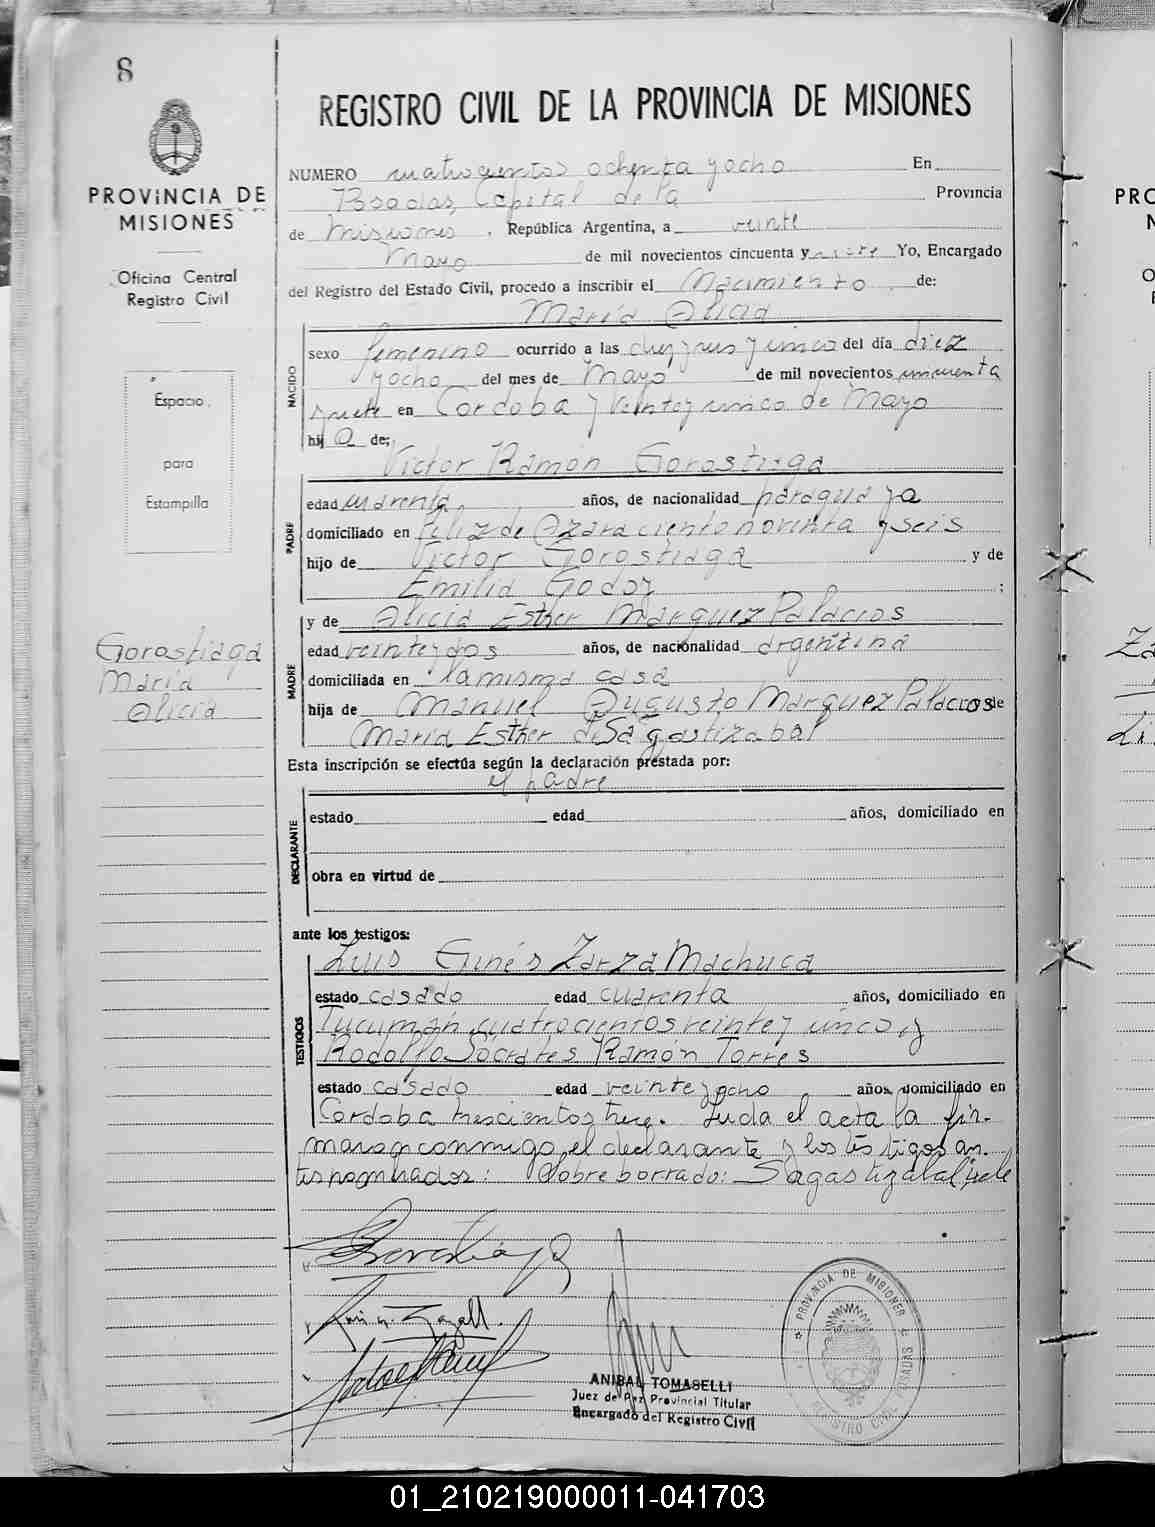 8
PROVINCIA DE
MISIONES
Oficina Central
Registro Civil
Espacio
para
Estampilla
Gorostiaga
María
Alicia
REGISTRO CIVIL DE LA PROVINCIA DE MISIONES
NUMERO cuatrocientos ochenta y ocho En
Posadas, Capital de la Provincia
de Misiones, República Argentina, a veinte
Mayo de mil novecientos cincuenta y siete Yo, Encargado
del Registro del Estado Civil, procedo a inscribir el Nacimiento de:
María Alicia
NACIDO
sexo femenino ocurrido a las diez y seis y cinco del día diez
y ocho del mes de Mayo de mil novecientos cincuenta
y siete en Córdoba y Veinte y cinco de Mayo
hij a de;
PADRE
Víctor Ramón Gorostiaga
edad cuarenta años, de nacionalidad paraguaya
domiciliado en Féliz de Azara ciento noventa y seis
hijo de Víctor Gorostiaga y de
Emilia Godoy ;
MADRE
y de Alicia Esther Márquez Palacios
edad veinte y dos años, de nacionalidad argentina
domiciliada en la misma casa
hija de Manuel Augusto Márquez Palacios de
María Esther de Sagastizabal
Esta inscripción se efectúa según la declaración prestada por:
el padre
DECLARANTE
estado edad años, domiciliado en
obra en virtud de
ante los testigos:
TESTIGOS
Luis Ginés Zarza Machuca
estado casado edad cuarenta años, domiciliado en
Tucumán cuatrocientos veinte y cinco y
Rodolfo Sócrates Ramón Torres
estado casado edad veinte y ocho años, domiciliado en
Córdoba trescientos trece. Leida el acta la fir-
maron conmigo, el declarante y los testigos an-
tes nombrados: Sobre borrado: Sagastizabal; vale
ANIBAL TOMASELLI
Juez de Paz Provincial Titular
Encargado del Registro Civil
PROVINCIA DE MISIONES
REGISTRO CIVIL
PRO
Za
Li
01_210219000011-041703